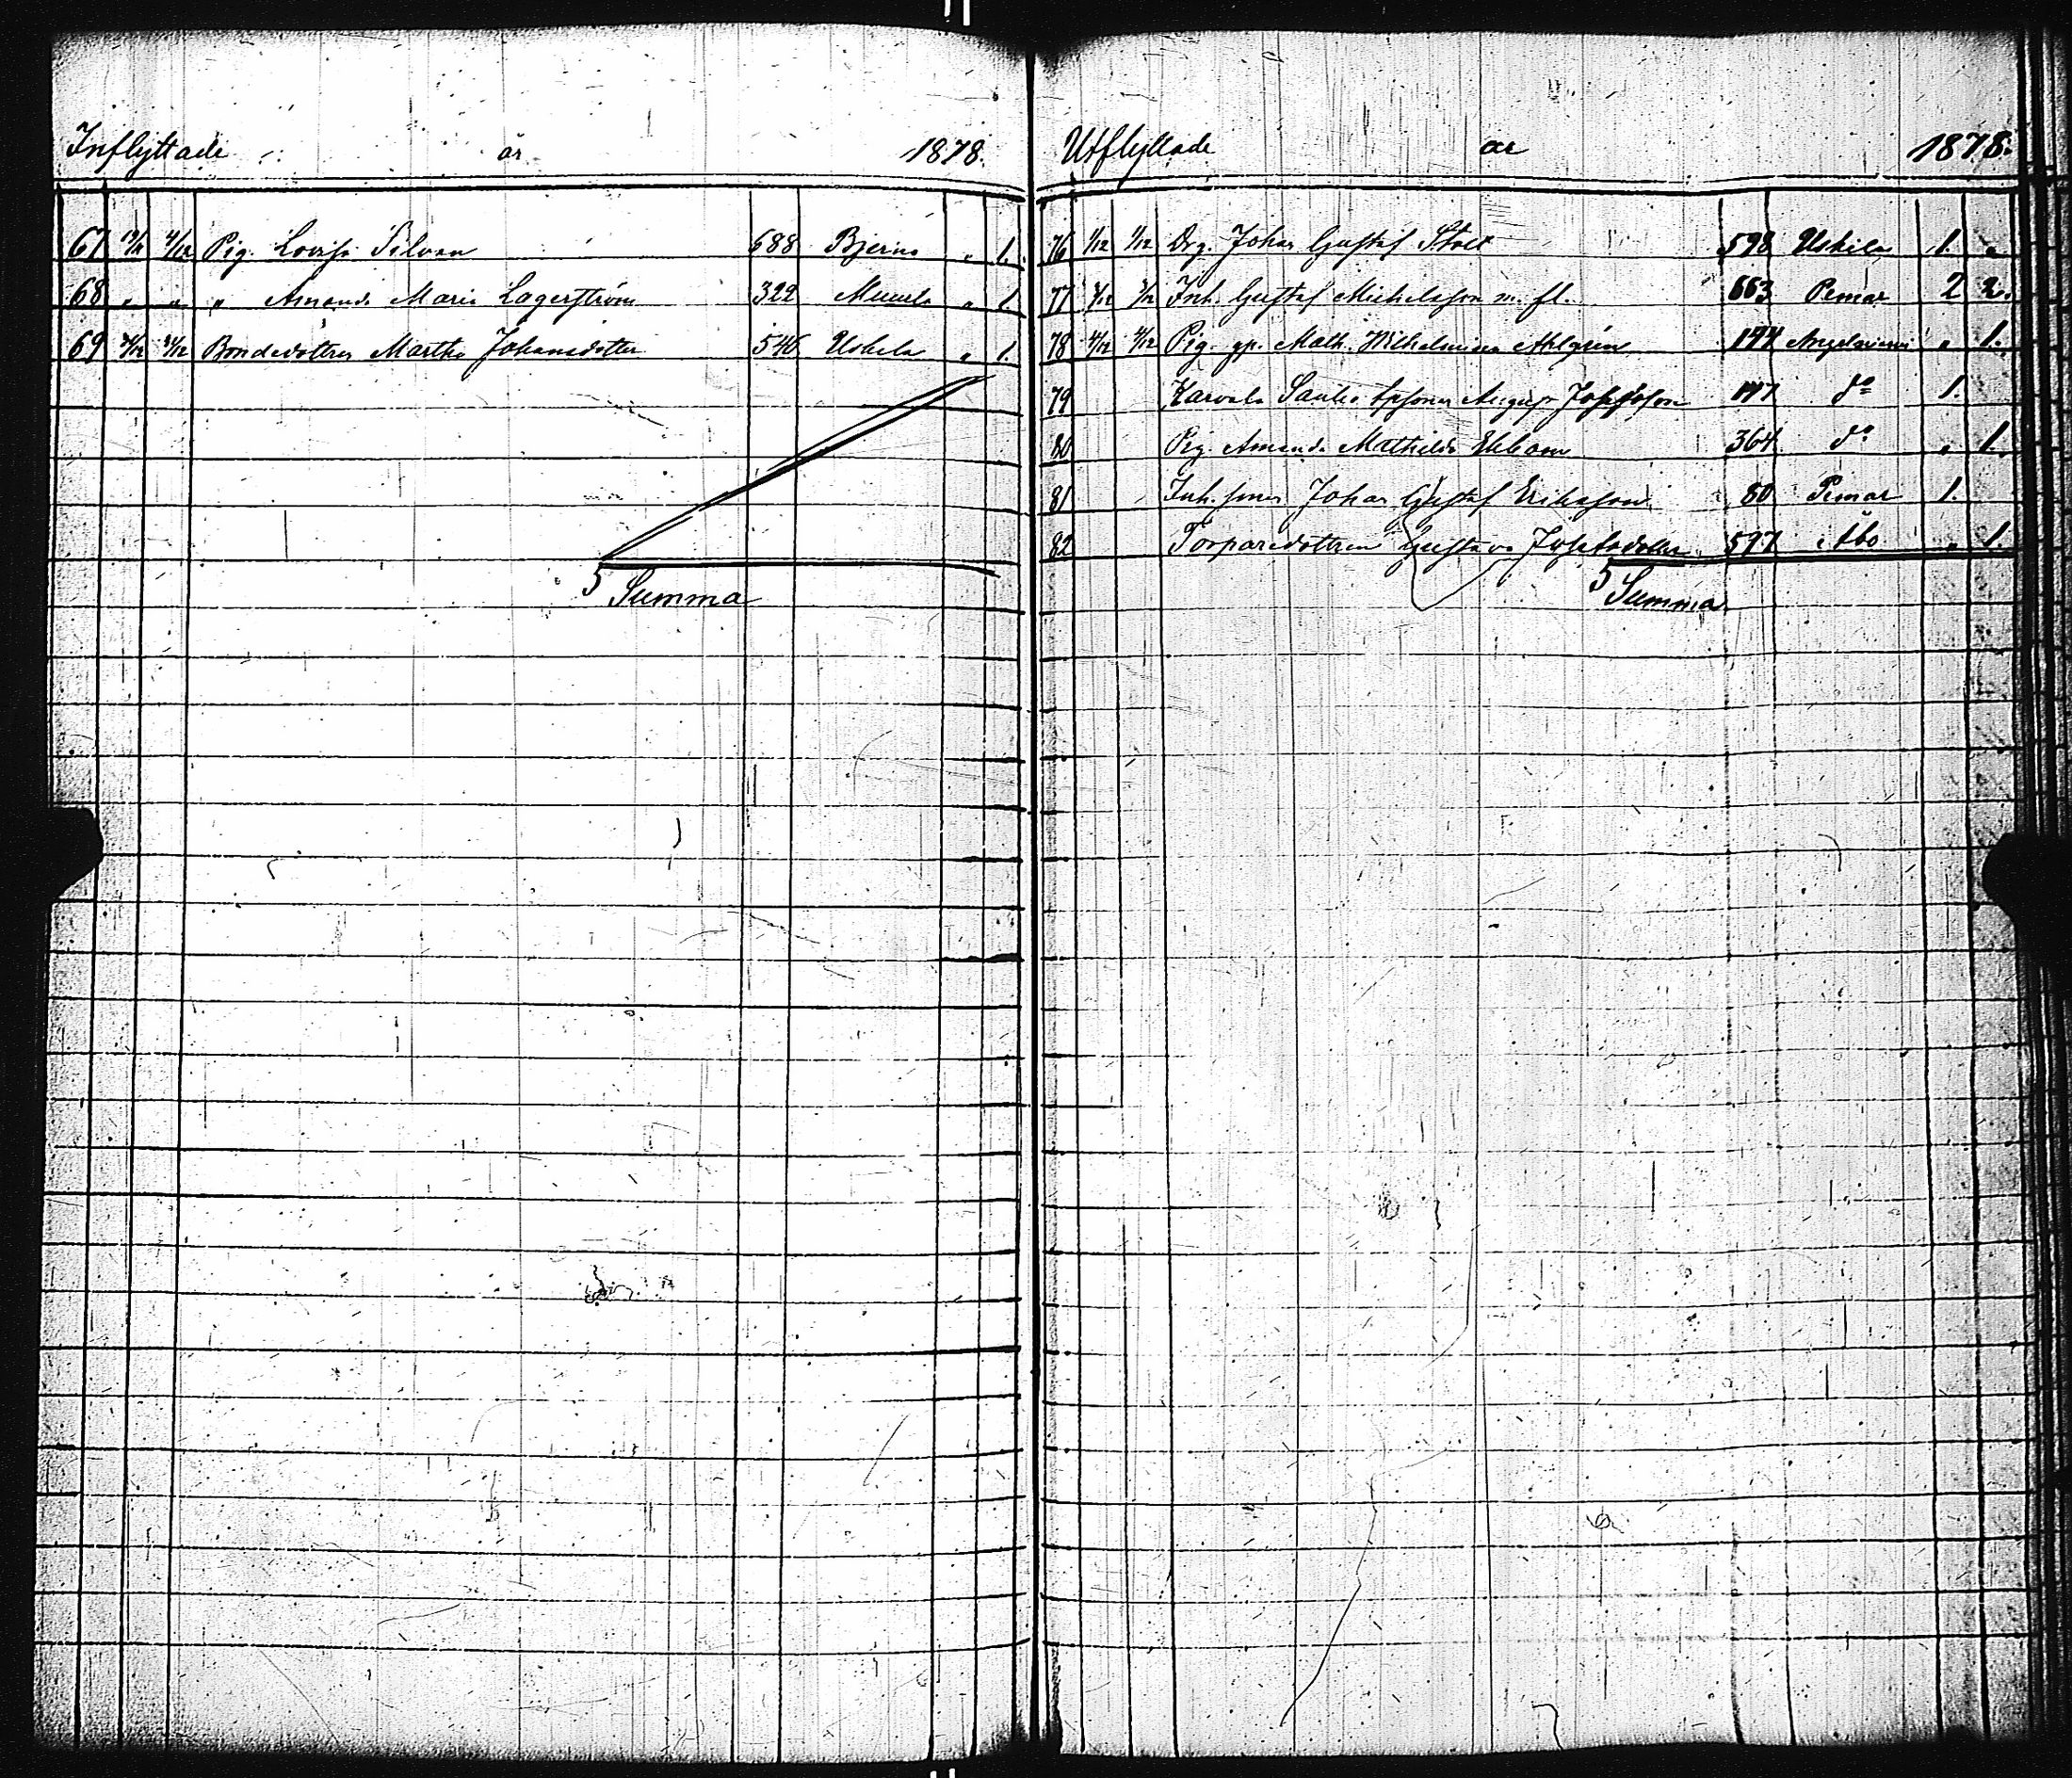 Inflyttade år 1878.
67 4/12 Pig. Lovisa Silvan 688 Bjerno „ 1.
68 „ „ „ Amanda Maria Lagerström 322 „ 1.
69 Bondedottren Martha Johansdotter 546 Uskela „ 1.
Summa
Utflyttade år 1878.
76 1/12 1/12 Drg. Johan Gustaf Stolt 598 Uskela 1. „
77 Inh. Gustaf Michelsson m. fl. 663 Pemar 2 2.
78 4/12 4/12 Pig. Math. Wilhelmina Ahlgren 144 Angelniemi „ 1.
79 Karvela August Josefsson do 1.
80 Pig. Amanda Mathilda Ekbom 364 do „ 1.
81 Inh. sonen Johan Gustaf Eriksson 80 Pemar 1.
82 Torparedottren Gustava Josefsdotter 597 Åbo „ 1.
Summa